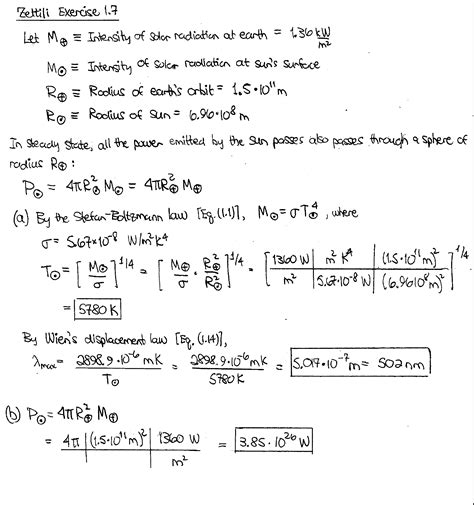 Zettili Exercise 1.7
Let M⊕ ≡ Intensity of solar radiation at earth = 1.36 kW/m²
M⊙ ≡ Intensity of solar radiation at sun's surface
R⊕ ≡ Radius of earth's orbit = 1.5·10¹¹ m
R⊙ ≡ Radius of sun = 6.96·10⁸ m
In steady state, all the power emitted by the sun passes also passes through a sphere of
radius R⊕:
P⊙ = 4πR⊙² M⊙ = 4πR⊕² M⊕
(a) By the Stefan-Boltzmann law [Eq.(1.1)], M⊙ = σT⊙⁴, where
σ = 5.67×10⁻⁸ W/m²K⁴
T⊙ = [M⊙/σ]^1/4 = [M⊕/σ · R⊕²/R⊙²]^1/4 = [1360 W/m² | m² K⁴/5.67·10⁻⁸ W | (1.5·10¹¹ m)²/(6.96·10⁸ m)²]^1/4
= 5780 K
By Wien's displacement law [Eq. (1.14)],
λmax = 2898.9·10⁻⁶ mK/T⊙ = 2898.9·10⁻⁶ mK/5780 K = 5.017·10⁻⁷ m = 502 nm
(b) P⊙ = 4πR⊕² M⊕
= 4π | (1.5·10¹¹ m)² | 1360 W/m² = 3.85·10²⁶ W